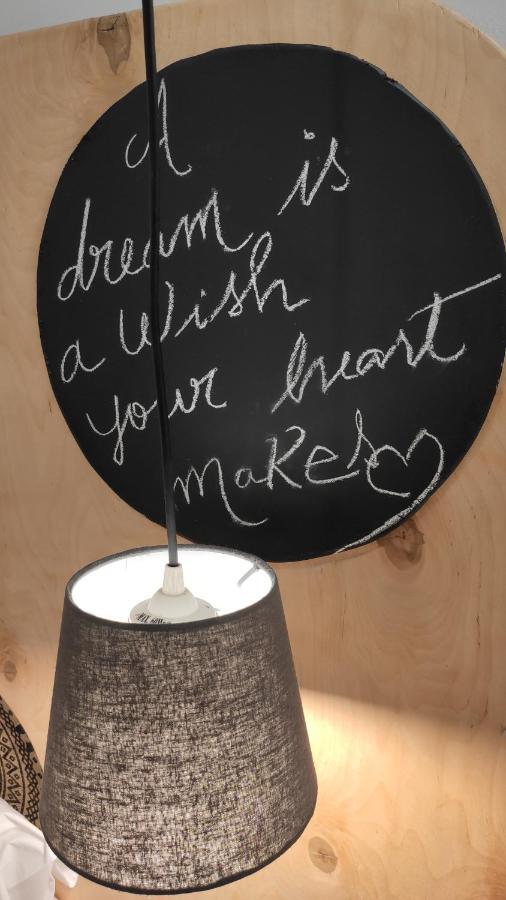 A
dream is
a Wish
your heart
makes